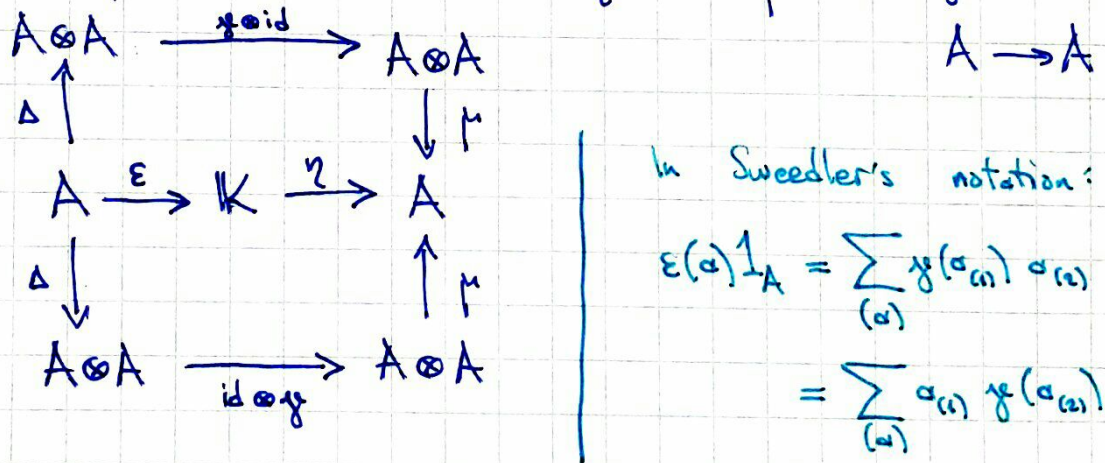 A⊗A → γ⊗id → A⊗A
A → A
Δ ↑ ↓ μ
A → ε → 𝕂 → η → A
Δ ↓ ↑ μ
A⊗A → id⊗γ → A⊗A
In Sweedler's notation:
ε(a)1_A = ∑_(a) γ(a_(1)) a_(2)
= ∑_(a) a_(1) γ(a_(2))